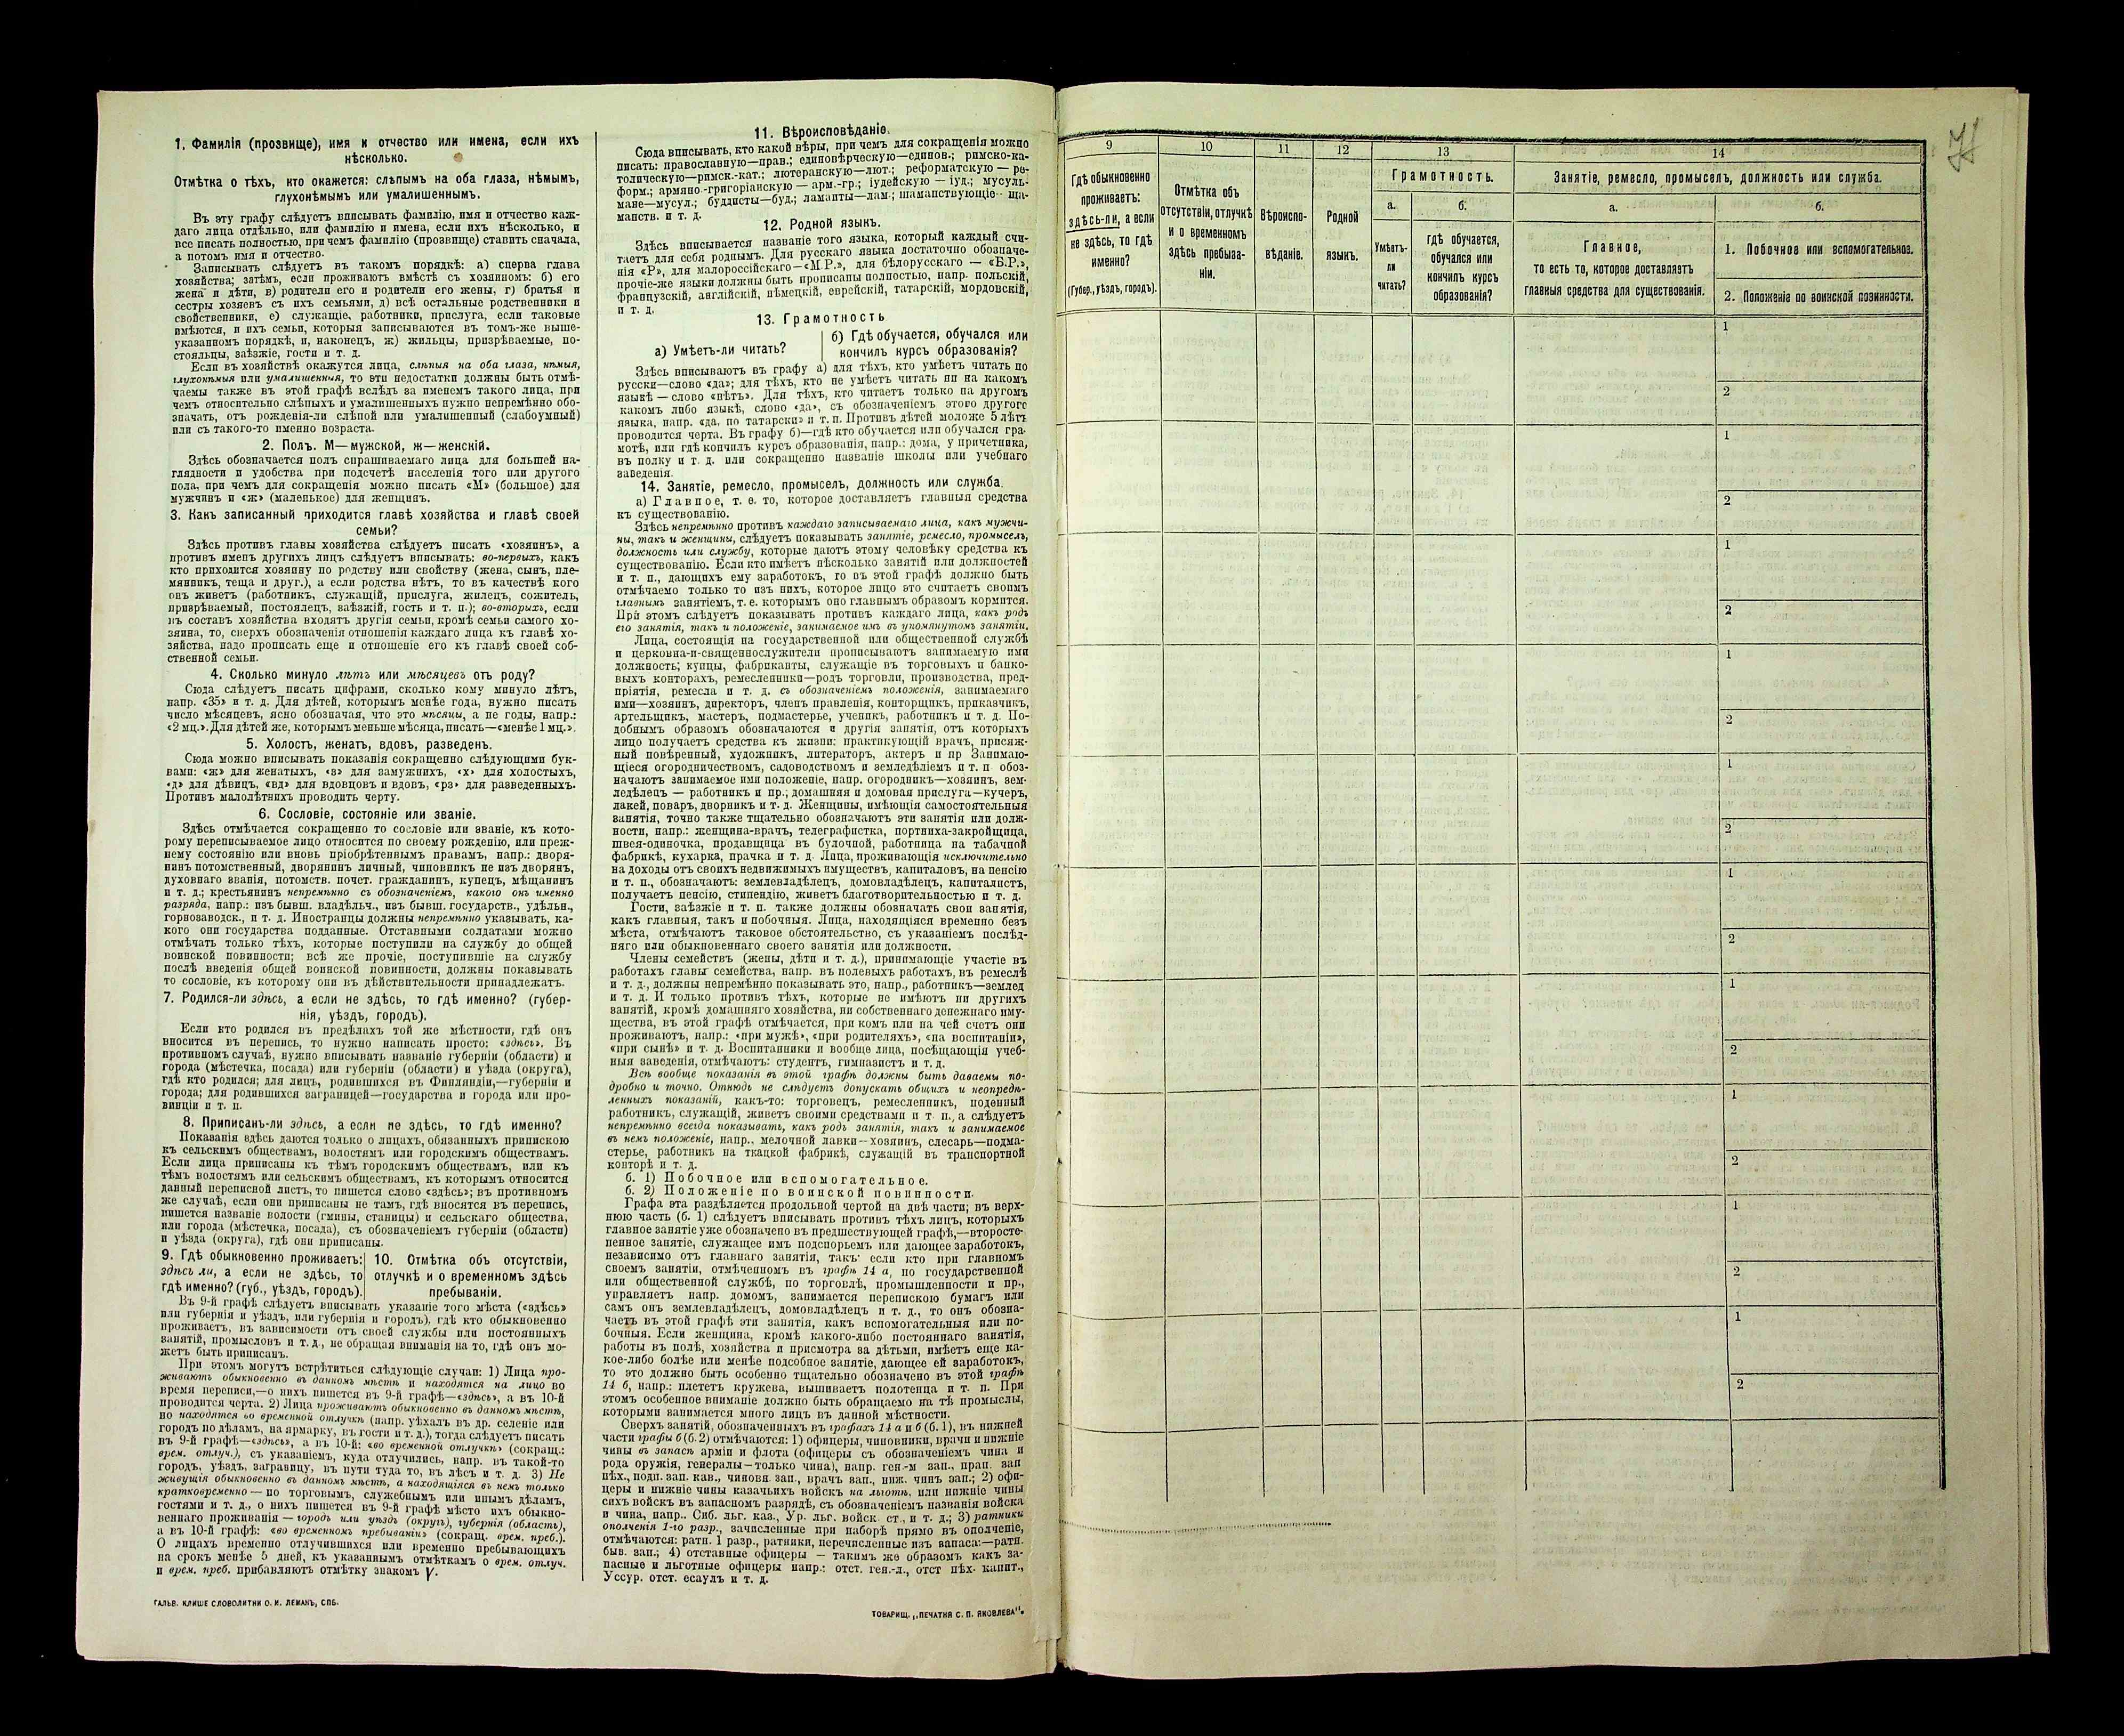 1. Фамилія (прозвище), имя и отчество или имена, если ихъ
нѣсколько.
Отмѣтка о тѣхъ, кто окажется: слѣпымъ на оба глаза, нѣмымъ,
глухонѣмымъ или умалишеннымъ.
Въ эту графу слѣдуетъ вписывать фамилію, имя и отчество каж-
даго лица отдѣльно, или фамилію и имена, если ихъ нѣсколько, и
все писать полностью, при чемъ фамилію (прозвище) ставить сначала,
а потомъ имя и отчество.
Записывать слѣдуетъ въ такомъ порядкѣ: а) сперва глава
хозяйства; затѣмъ, если проживаютъ вмѣстѣ съ хозяиномъ: б) его
жена и дѣти, в) родители его и родители его жены, г) братья и
сестры хозяевъ съ ихъ семьями, д) всѣ остальные родственники и
свойственники, е) служащіе, работники, прислуга, если таковые
имѣются, и ихъ семьи, которыя записываются въ томъ-же выше-
указанномъ порядкѣ, и, наконецъ, ж) жильцы, призрѣваемые, по-
стояльцы, заѣзжіе, гости и т. д.
Если въ хозяйствѣ окажутся лица, слѣпыя на оба глаза, нѣмыя,
глухонѣмыя или умалишенныя, то эти недостатки должны быть отмѣ-
чаемы также въ этой графѣ вслѣдъ за именемъ такого лица, при
чемъ относительно слѣпыхъ и умалишенныхъ нужно непремѣнно обо-
значать, отъ рожденія-ли слѣпой или умалишенный (слабоумный)
или съ такого-то именно возраста.
2. Полъ. М—мужской, ж—женскій.
Здѣсь обозначается полъ спрашиваемаго лица для большей на-
глядности и удобства при подсчетѣ населенія того или другого
пола, при чемъ для сокращенія можно писать «М» (большое) для
мужчинъ и «ж» (маленькое) для женщинъ.
3. Какъ записанный приходится главѣ хозяйства и главѣ своей
семьи?
Здѣсь противъ главы хозяйства слѣдуетъ писать «хозяинъ», а
противъ именъ другихъ лицъ слѣдуетъ вписывать: во-первыхъ, какъ
кто приходится хозяину по родству или свойству (жена, сынъ, пле-
мянникъ, теща и друг.), а если родства нѣтъ, то въ качествѣ кого
онъ живетъ (работникъ, служащій, прислуга, жилецъ, сожитель,
призрѣваемый, постоялецъ, заѣзжій, гость и т. п.); во-вторыхъ, если
въ составъ хозяйства входятъ другія семьи, кромѣ семьи самого хо-
зяина, то, сверхъ обозначенія отношенія каждаго лица къ главѣ хо-
зяйства, надо прописать еще и отношеніе его къ главѣ своей соб-
ственной семьи.
4. Сколько минуло лѣтъ или мѣсяцевъ отъ роду?
Сюда слѣдуетъ писать цифрами, сколько кому минуло лѣтъ,
напр. «35» и т. д. Для дѣтей, которымъ менѣе года, нужно писать
число мѣсяцевъ, ясно обозначая, что это мѣсяцы, а не годы, напр.:
«2 мц.». Для дѣтей же, которымъ меньше мѣсяца, писать—«менѣе 1 мц.».
5. Холостъ, женатъ, вдовъ, разведенъ.
Сюда можно вписывать показанія сокращенно слѣдующими бук-
вами: «ж» для женатыхъ, «з» для замужнихъ, «х» для холостыхъ,
«д» для дѣвицъ, «вд» для вдовцовъ и вдовъ, «рз» для разведенныхъ.
Противъ малолѣтнихъ проводить черту.
6. Сословіе, состояніе или званіе.
Здѣсь отмѣчается сокращенно то сословіе или званіе, къ кото-
рому переписываемое лицо относится по своему рожденію, или преж-
нему состоянію или вновь пріобрѣтеннымъ правамъ, напр.: дворя-
нинъ потомственный, дворянинъ личный, чиновникъ не изъ дворянъ,
духовнаго званія, потомств. почет. гражданинъ, купецъ, мѣщанинъ
и т. д.; крестьянинъ непремѣнно съ обозначеніемъ, какого онъ именно
разряда, напр.: изъ бывш. владѣльч., изъ бывш. государств., удѣльн.,
горнозаводск., и т. д. Иностранцы должны непремѣнно указывать, ка-
кого они государства подданные. Отставными солдатами можно
отмѣчать только тѣхъ, которые поступили на службу до общей
воинской повинности; всѣ же прочіе, поступившіе на службу
послѣ введенія общей воинской повинности, должны показывать
то сословіе, къ которому они въ дѣйствительности принадлежатъ.
7. Родился-ли здѣсь, а если не здѣсь, то гдѣ именно? (губер-
нія, уѣздъ, городъ).
Если кто родился въ предѣлахъ той же мѣстности, гдѣ онъ
вносится въ перепись, то нужно написать просто: «здѣсь». Въ
противномъ случаѣ, нужно вписывать названіе губерніи (области) и
города (мѣстечка, посада) или губерніи (области) и уѣзда (округа),
гдѣ кто родился; для лицъ, родившихся въ Финляндіи,—губерніи и
города; для родившихся заграницей—государства и города или про-
винціи и т. п.
8. Приписанъ-ли здѣсь, а если не здѣсь, то гдѣ именно?
Показанія здѣсь даются только о лицахъ, обязанныхъ припискою
къ сельскимъ обществамъ, волостямъ или городскимъ обществамъ.
Если лица приписаны къ тѣмъ городскимъ обществамъ, или къ
тѣмъ волостямъ или сельскимъ обществамъ, къ которымъ относится
данный переписной листъ, то пишется слово «здѣсь»; въ противномъ
же случаѣ, если они приписаны не тамъ, гдѣ вносятся въ перепись,
пишется названіе волости (гмины, станицы) и сельскаго общества,
или города (мѣстечка, посада), съ обозначеніемъ губерніи (области)
и уѣзда (округа), гдѣ они приписаны.
9. Гдѣ обыкновенно проживаетъ:
здѣсь ли, а если не здѣсь, то
гдѣ именно? (губ., уѣздъ, городъ).
10. Отмѣтка объ отсутствіи,
отлучкѣ и о временномъ здѣсь
пребываніи.
Въ 9-й графѣ слѣдуетъ вписывать указаніе того мѣста («здѣсь»
или губернія и уѣздъ, или губернія и городъ), гдѣ кто обыкновенно
проживаетъ, въ зависимости отъ своей службы или постоянныхъ
занятій, промысловъ и т. д., не обращая вниманія на то, гдѣ онъ мо-
жетъ быть приписанъ.
При этомъ могутъ встрѣтиться слѣдующіе случаи: 1) Лица про-
живаютъ обыкновенно въ данномъ мѣстѣ и находятся на лицо во
время переписи,—о нихъ пишется въ 9-й графѣ—«здѣсь», а въ 10-й
проводится черта. 2) Лица проживаютъ обыкновенно въ данномъ мѣстѣ,
но находятся во временной отлучкѣ (напр. уѣхалъ въ др. селеніе или
городъ по дѣламъ, на ярмарку, въ гости и т. д.), тогда слѣдуетъ писать
въ 9-й графѣ—«здѣсь», а въ 10-й: «во временной отлучкѣ» (сокращ.:
врем. отлуч.), съ указаніемъ, куда отлучились, напр. въ такой-то
городъ, уѣздъ, заграницу, въ пути туда то, въ лѣсъ и т. д. 3) Не
живущія обыкновенно въ данномъ мѣстѣ, а находящіяся въ немъ только
кратковременно — по торговымъ, служебнымъ или инымъ дѣламъ,
гостями и т. д., о нихъ пишется въ 9-й графѣ мѣсто ихъ обыкно-
веннаго проживанія — городъ или уѣздъ (округъ), губернія (область),
а въ 10-й графѣ: «во временномъ пребываніи» (сокращ. врем. преб.).
О лицахъ временно отлучившихся или временно пребывающихъ
на срокъ менѣе 5 дней, къ указаннымъ отмѣткамъ о врем. отлуч.
и врем. преб. прибавляютъ отмѣтку знакомъ V.
ГАЛЬВ. КЛИШЕ СЛОВОЛИТНИ О. И. ЛЕМАНЪ, СПБ.
11. Вѣроисповѣданіе.
Сюда вписывать, кто какой вѣры, при чемъ для сокращенія можно
писать: православную—прав.; единовѣрческую—единов.; римско-ка-
толическую—римск.-кат.; лютеранскую—лют.; реформатскую — ре-
форм.; армяно-григоріанскую — арм.-гр.; іудейскую — іуд.; мусуль-
мане—мусул.; буддисты—буд.; ламаиты—лам.; шаманствующіе— ша-
манств. и т. д.
12. Родной языкъ.
Здѣсь вписывается названіе того языка, который каждый счи-
таетъ для себя роднымъ. Для русскаго языка достаточно обозначе-
нія «Р», для малороссійскаго—«М.Р.», для бѣлорусскаго — «Б.Р.»,
прочіе-же языки должны быть прописаны полностью, напр. польскій,
французскій, англійскій, нѣмецкій, еврейскій, татарскій, мордовскій,
и т. д.
13. Грамотность
а) Умѣетъ-ли читать?
б) Гдѣ обучается, обучался или
кончилъ курсъ образованія?
Здѣсь вписываютъ въ графу а) для тѣхъ, кто умѣетъ читать по
русски—слово «да»; для тѣхъ, кто не умѣетъ читать ни на какомъ
языкѣ — слово «нѣтъ». Для тѣхъ, кто читаетъ только на другомъ
какомъ либо языкѣ, слово «да», съ обозначеніемъ этого другого
языка, напр. «да, по татарски» и т. п. Противъ дѣтей моложе 5 лѣтъ
проводится черта. Въ графу б)—гдѣ кто обучается или обучался гра-
мотѣ, или гдѣ кончилъ курсъ образованія, напр.: дома, у причетника,
въ полку и т. д. или сокращенно названіе школы или учебнаго
заведенія.
14. Занятіе, ремесло, промыселъ, должность или служба.
а) Главное, т. е. то, которое доставляетъ главныя средства
къ существованію.
Здѣсь непремѣнно противъ каждаго записываемаго лица, какъ мужчи-
ны, такъ и женщины, слѣдуетъ показывать занятіе, ремесло, промыселъ,
должность или службу, которые даютъ этому человѣку средства къ
существованію. Если кто имѣетъ нѣсколько занятій или должностей
и т. п., дающихъ ему заработокъ, то въ этой графѣ должно быть
отмѣчаемо только то изъ нихъ, которое лицо это считаетъ своимъ
главнымъ занятіемъ, т. е. которымъ оно главнымъ образомъ кормится.
При этомъ слѣдуетъ показывать противъ каждаго лица, какъ родъ
его занятія, такъ и положеніе, занимаемое имъ въ упомянутомъ занятіи.
Лица, состоящія на государственной или общественной службѣ
и церковна-и-священнослужители прописываютъ занимаемую ими
должность; купцы, фабриканты, служащіе въ торговыхъ и банко-
выхъ конторахъ, ремесленники—родъ торговли, производства, пред-
пріятія, ремесла и т. д. съ обозначеніемъ положенія, занимаемаго
ими—хозяинъ, директоръ, членъ правленія, конторщикъ, приказчикъ,
артельщикъ, мастеръ, подмастерье, ученикъ, работникъ и т. д. По-
добнымъ образомъ обозначаются и другія занятія, отъ которыхъ
лицо получаетъ средства къ жизни: практикующій врачъ, присяж-
ный повѣренный, художникъ, литераторъ, актеръ и пр Занимаю-
щіеся огородничествомъ, садоводствомъ и земледѣліемъ и т. п обоз-
начаютъ занимаемое ими положеніе, напр. огородникъ—хозяинъ, зем-
ледѣлецъ — работникъ и пр.; домашняя и домовая прислуга—кучеръ,
лакей, поваръ, дворникъ и т. д. Женщины, имѣющія самостоятельныя
занятія, точно также тщательно обозначаютъ эти занятія или долж-
ности, напр.: женщина-врачъ, телеграфистка, портниха-закройщица,
швея-одиночка, продавщица въ булочной, работница на табачной
фабрикѣ, кухарка, прачка и т. д. Лица, проживающія исключительно
на доходы отъ своихъ недвижимыхъ имуществъ, капиталовъ, на пенсію
и т. п., обозначаютъ: землевладѣлецъ, домовладѣлецъ, капиталистъ,
получаетъ пенсію, стипендію, живетъ благотворительностью и т. д.
Гости, заѣзжіе и т. п. также должны обозначать свои занятія,
какъ главныя, такъ и побочныя. Лица, находящіяся временно безъ
мѣста, отмѣчаютъ таковое обстоятельство, съ указаніемъ послѣд-
няго или обыкновеннаго своего занятія или должности.
Члены семействъ (жены, дѣти и т. д.), принимающіе участіе въ
работахъ главы семейства, напр. въ полевыхъ работахъ, въ ремеслѣ
и т. д., должны непремѣнно показывать это, напр., работникъ—землед
и т. д. И только противъ тѣхъ, которые не имѣютъ ни другихъ
занятій, кромѣ домашняго хозяйства, ни собственнаго денежнаго иму-
щества, въ этой графѣ отмѣчается, при комъ или на чей счетъ они
проживаютъ, напр.: «при мужѣ», «при родителяхъ», «на воспитаніи»,
«при сынѣ» и т. д. Воспитанники и вообще лица, посѣщающія учеб-
ныя заведенія, отмѣчаютъ: студентъ, гимназистъ и т. д.
Всѣ вообще показанія въ этой графѣ должны быть даваемы по-
дробно и точно. Отнюдь не слѣдуетъ допускать общихъ и неопредѣ-
ленныхъ показаній, какъ-то: торговецъ, ремесленникъ, поденный
работникъ, служащій, живетъ своими средствами и т. п., а слѣдуетъ
непремѣнно всегда показывать, какъ родъ занятія, такъ и занимаемое
въ немъ положеніе, напр., мелочной лавки—хозяинъ, слесарь—подма-
стерье, работникъ на ткацкой фабрикѣ, служащій въ транспортной
конторѣ и т. д.
б. 1) Побочное или вспомогательное.
б. 2) Положеніе по воинской повинности.
Графа эта раздѣляется продольной чертой на двѣ части; въ верх-
нюю часть (б. 1) слѣдуетъ вписывать противъ тѣхъ лицъ, которыхъ
главное занятіе уже обозначено въ предшествующей графѣ,—второсте-
пенное занятіе, служащее имъ подспорьемъ или дающее заработокъ,
независимо отъ главнаго занятія, такъ: если кто при главномъ
своемъ занятіи, отмѣченномъ въ графѣ 14 а, по государственной
или общественной службѣ, по торговлѣ, промышленности и пр.,
управляетъ напр. домомъ, занимается перепискою бумагъ или
самъ онъ землевладѣлецъ, домовладѣлецъ и т. д., то онъ обозна-
чаетъ въ этой графѣ эти занятія, какъ вспомогательныя или по-
бочныя. Если женщина, кромѣ какого-либо постояннаго занятія,
работы въ полѣ, хозяйства и присмотра за дѣтьми, имѣетъ еще ка-
кое-либо болѣе или менѣе подсобное занятіе, дающее ей заработокъ,
то это должно быть особенно тщательно обозначено въ этой графѣ
14 б, напр.: плететъ кружева, вышиваетъ полотенца и т. п. При
этомъ особенное вниманіе должно быть обращаемо на тѣ промыслы,
которыми занимается много лицъ въ данной мѣстности.
Сверхъ занятій, обозначенныхъ въ графахъ 14 а и б (б. 1), въ нижней
части графы б (б. 2) отмѣчаются: 1) офицеры, чиновники, врачи и нижніе
чины въ запасѣ арміи и флота (офицеры съ обозначеніемъ чина и
рода оружія, генералы—только чина), напр. ген.-м зап., прап. зап
пѣх., подп. зап. кав., чиновн. зап., врачъ зап., ниж. чинъ зап.; 2) офи-
церы и нижніе чины казачьихъ войскъ на льготѣ, или нижніе чины
сихъ войскъ въ запасномъ разрядѣ, съ обозначеніемъ названія войска
и чина, напр.. Сиб. льг. каз., Ур. льг. войск. ст., и т. д.; 3) ратники
ополченія 1-го разр., зачисленные при наборѣ прямо въ ополченіе,
отмѣчаются: ратн. 1 разр., ратники, перечисленные изъ запаса:—ратн.
быв. зап.; 4) отставные офицеры — такимъ же образомъ какъ за-
пасные и льготные офицеры напр.: отст. ген.-л., отст пѣх. капит.,
Уссур. отст. есаулъ и т. д.
ТОВАРИЩ. „ПЕЧАТНЯ С. П. ЯКОВЛЕВА“.
9
10
11
12
13
14
Гдѣ обыкновенно
проживаетъ:
здѣсь-ли, а если
не здѣсь, то гдѣ
именно?
(Губер., уѣздъ, городъ).
Отмѣтка объ
отсутствіи, отлучкѣ
и о временномъ
здѣсь пребыва-
ніи.
Вѣроиспо-
вѣданіе.
Родной
языкъ.
Грамотность.
а.
Умѣетъ-
ли
читать?
б.
гдѣ обучается,
обучался или
кончилъ курсъ
образованія?
Занятіе, ремесло, промыселъ, должность или служба.
а.
Главное,
то есть то, которое доставляетъ
главныя средства для существованія.
б.
1. Побочное или вспомогательное.
2. Положеніе по воинской повинности.
1
2
1
2
1
2
1
2
1
2
1
2
1
2
1
2
1
2
1
2